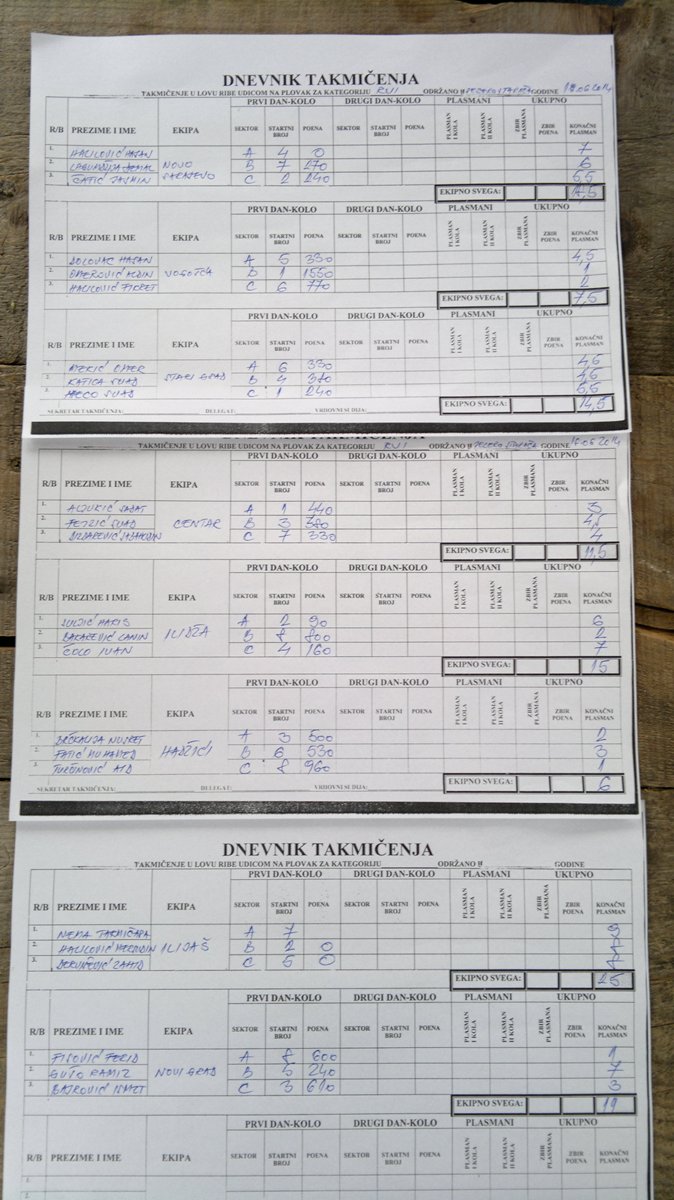 DNEVNIK TAKMIČENJA
TAKMIČENJE U LOVU RIBE UDICOM NA PLOVAK ZA KATEGORIJU ODRŽANO U GODINE 2014
PRVI DAN-KOLO DRUGI DAN-KOLO PLASMANI UKUPNO
R/B PREZIME I IME EKIPA SEKTOR STARTNI BROJ POENA SEKTOR STARTNI BROJ POENA PLASMAN I KOLA PLASMAN II KOLA ZBIR PLASMANA ZBIR POENA KONAČNI PLASMAN
1. HALILOVIĆ HASAN A 4 0 7
2. NOVO B 7 270 6
3. ĆATIĆ JASMIN SARAJEVO C 2 240 5,5
EKIPNO SVEGA:
PRVI DAN-KOLO DRUGI DAN-KOLO PLASMANI UKUPNO
R/B PREZIME I IME EKIPA SEKTOR STARTNI BROJ POENA SEKTOR STARTNI BROJ POENA PLASMAN I KOLA PLASMAN II KOLA ZBIR PLASMANA ZBIR POENA KONAČNI PLASMAN
1. DOLOVAC HASAN A 5 330 4,5
2. OMEROVIĆ ALDIN VOGOŠĆA B 1 1550 1
3. HALILOVIĆ FIKRET C 6 770 2
EKIPNO SVEGA: 7,5
PRVI DAN-KOLO DRUGI DAN-KOLO PLASMANI UKUPNO
R/B PREZIME I IME EKIPA SEKTOR STARTNI BROJ POENA SEKTOR STARTNI BROJ POENA PLASMAN I KOLA PLASMAN II KOLA ZBIR PLASMANA ZBIR POENA KONAČNI PLASMAN
1. OMER STARI GRAD A 6 330 4,5
2. KATICA SUAD B 4 380 4,5
3. SUAD C 1 240 5,5
EKIPNO SVEGA: 14,5
SEKRETAR TAKMIČENJA: DELEGAT: VRHOVNI SUDIJA:
DNEVNIK TAKMIČENJA
TAKMIČENJE U LOVU RIBE UDICOM NA PLOVAK ZA KATEGORIJU ODRŽANO U GODINE 2014
R/B PREZIME I IME EKIPA PRVI DAN-KOLO DRUGI DAN-KOLO PLASMANI UKUPNO
SEKTOR STARTNI BROJ POENA SEKTOR STARTNI BROJ POENA PLASMAN I KOLA PLASMAN II KOLA ZBIR PLASMANA ZBIR POENA KONAČNI PLASMAN
1. A 1 440 3
2. SUAD CENTAR B 3 380 4,5
3. C 7 330 4
EKIPNO SVEGA: 11,5
PRVI DAN-KOLO DRUGI DAN-KOLO PLASMANI UKUPNO
R/B PREZIME I IME EKIPA SEKTOR STARTNI BROJ POENA SEKTOR STARTNI BROJ POENA PLASMAN I KOLA PLASMAN II KOLA ZBIR PLASMANA ZBIR POENA KONAČNI PLASMAN
1. HARIS A 2 90 6
2. ILIDŽA B 8 800 2
3. ČOLO IVAN C 4 160 7
EKIPNO SVEGA: 15
PRVI DAN-KOLO DRUGI DAN-KOLO PLASMANI UKUPNO
R/B PREZIME I IME EKIPA SEKTOR STARTNI BROJ POENA SEKTOR STARTNI BROJ POENA PLASMAN I KOLA PLASMAN II KOLA ZBIR PLASMANA ZBIR POENA KONAČNI PLASMAN
1. NUSRET A 3 500 2
2. FATIĆ MUHAMED HADŽIĆI B 6 530 3
3. C 8 960 1
EKIPNO SVEGA: 6
SEKRETAR TAKMIČENJA: DELEGAT: VRHOVNI SUDIJA:
DNEVNIK TAKMIČENJA
TAKMIČENJE U LOVU RIBE UDICOM NA PLOVAK ZA KATEGORIJU ODRŽANO U GODINE
PRVI DAN-KOLO DRUGI DAN-KOLO PLASMANI UKUPNO
R/B PREZIME I IME EKIPA SEKTOR STARTNI BROJ POENA SEKTOR STARTNI BROJ POENA PLASMAN I KOLA PLASMAN II KOLA ZBIR PLASMANA ZBIR POENA KONAČNI PLASMAN
1. NEMA TAKMIČARA A 7 9
2. HALILOVIĆ ILIJAŠ B 2 0
3. C 5 0
EKIPNO SVEGA: 25
PRVI DAN-KOLO DRUGI DAN-KOLO PLASMANI UKUPNO
R/B PREZIME I IME EKIPA SEKTOR STARTNI BROJ POENA SEKTOR STARTNI BROJ POENA PLASMAN I KOLA PLASMAN II KOLA ZBIR PLASMANA ZBIR POENA KONAČNI PLASMAN
1. FERID A 8 600 1
2. GUŠO RAMIZ NOVI GRAD B 5 240 7
3. BAJROVIĆ ISMET C 3 610 3
EKIPNO SVEGA: 11
PRVI DAN-KOLO DRUGI DAN-KOLO PLASMANI UKUPNO
R/B PREZIME I IME EKIPA SEKTOR STARTNI BROJ POENA SEKTOR STARTNI BROJ POENA PLASMAN I KOLA PLASMAN II KOLA ZBIR PLASMANA ZBIR POENA KONAČNI PLASMAN
1.